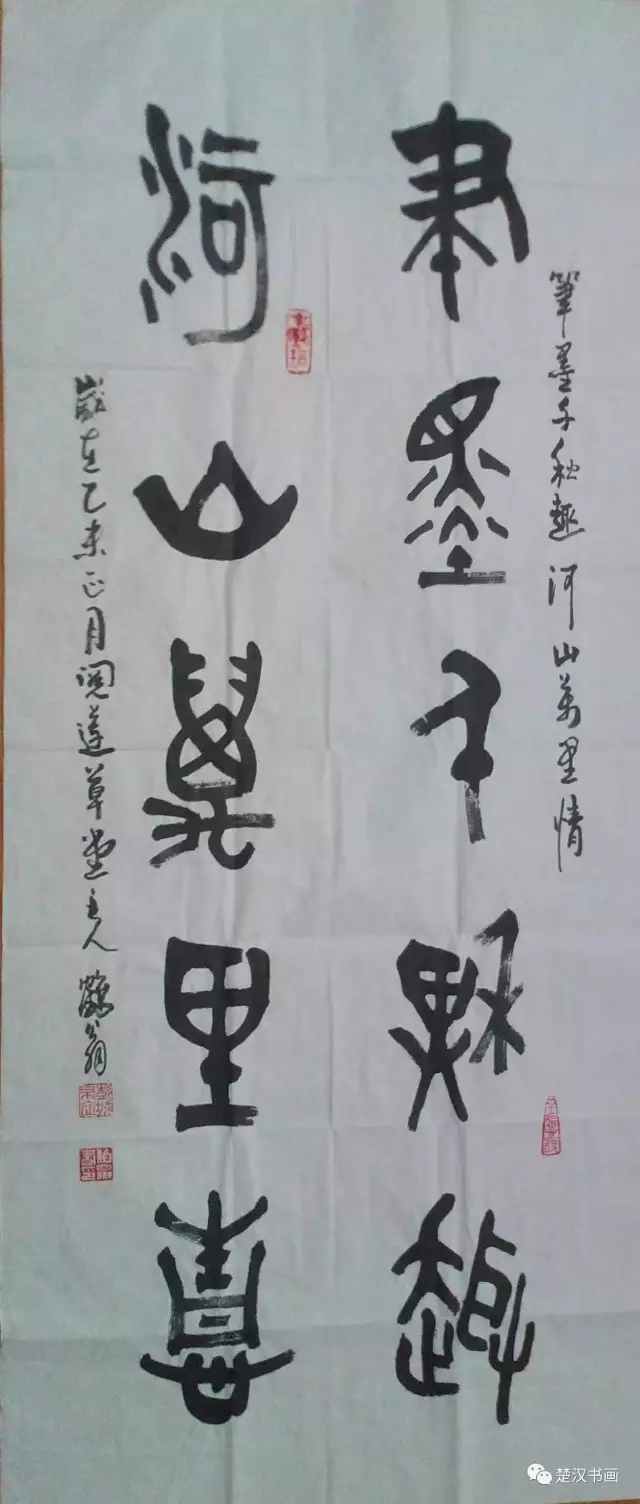 筆墨千秋趣河山萬里情
筆墨千秋趣
河山萬里情
歲在乙未正月閲蓮草堂主人鶴翁
楚汉书画